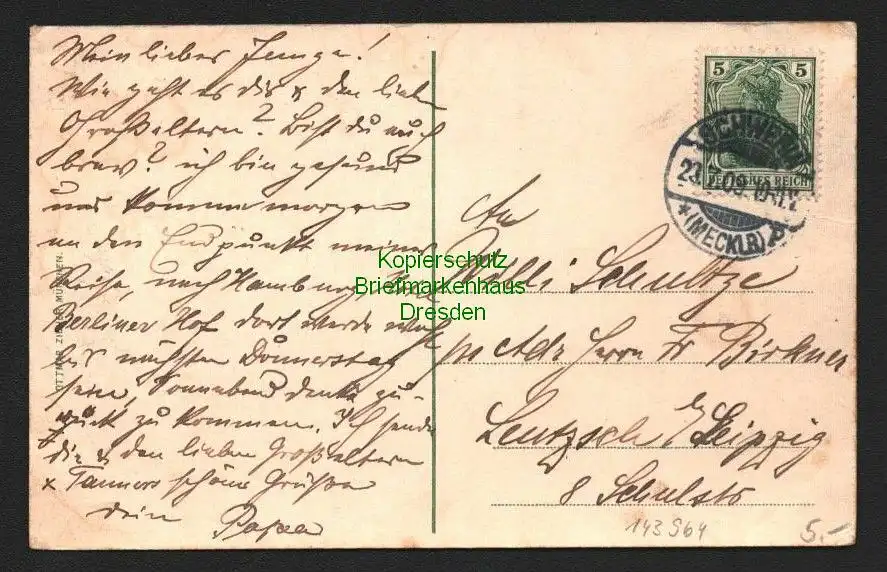 Mein lieber Junge!
Wie geht es dir & den lieben
Großeltern? Bist du auch
brav? ich bin gesund
und komme morgen
an den Endpunkt meiner
Reise, nach Hamburg,
Berliner Hof dort werde
bis nächsten Donnerstag
sein, Sonnabend denke zu-
rück zu kommen. Ich sende
dir & den lieben Großeltern
x Tanners schöne Grüße
dein Papa
OTTMAR ZIEHER, MÜNCHEN.
5 5
DEUTSCHES REICH
SCHWERIN
23. 09. 10-11
*(MECKLB)
An
Willi Schultze
pr Adr Herrn Fr Birkner
Leutzsch b/Leipzig
8 Schulstr
143964
5,-
Kopierschutz
Briefmarkenhaus
Dresden